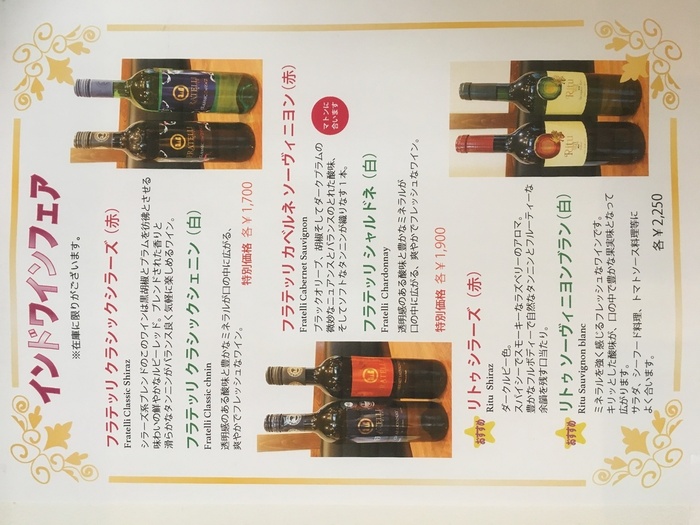 インドワインフェア
※在庫に限りがございます。
フラテッリ クラシックシラーズ（赤）
Fratelli Classic Shiraz
シラーズ系ブレンドのこのワインは黒胡椒とプラムを彷彿とさせる
味わいの鮮やかなルビーレッド。ブレンドされた香りと
滑らかなタンニンがバランス良く気軽に楽しめるワイン。
フラテッリ クラシックシェニン（白）
Fratelli Classic chnin
透明感のある酸味と豊かなミネラルが口の中に広がる、
爽やかでフレッシュなワイン。
特別価格 各￥1,700
フラテッリ カベルネ ソーヴィニヨン（赤）
Fratelli Cabernet Sauvignon
マトンに
合います
ブラックオリーブ、胡椒そしてダークプラムの
微妙なニュアンスとバランスのとれた酸味、
そしてソフトなタンニンが織りなす１本。
フラテッリ シャルドネ（白）
Fratelli Chardonnay
透明感のある酸味と豊かなミネラルが
口の中に広がる、爽やかでフレッシュなワイン。
特別価格 各￥1,900
おすすめ
リトゥ シラーズ（赤）
Ritu Shiraz
ダークルビー色。
スパイシーでスモーキーなラズベリーのアロマ。
豊かなフルボディーで自然なタンニンとフルーティーな
余韻を残す口当たり。
おすすめ
リトゥ ソーヴィニヨンブラン（白）
Ritu Sauvignon blanc
ミネラルを強く感じるフレッシュなワインです。
キリッとした酸味が、口の中で豊かな果実味となって
広がります。
サラダ、シーフード料理、トマトソース料理等に
よく合います。
各￥2,250
FRATELLI
Ritu
Ritu